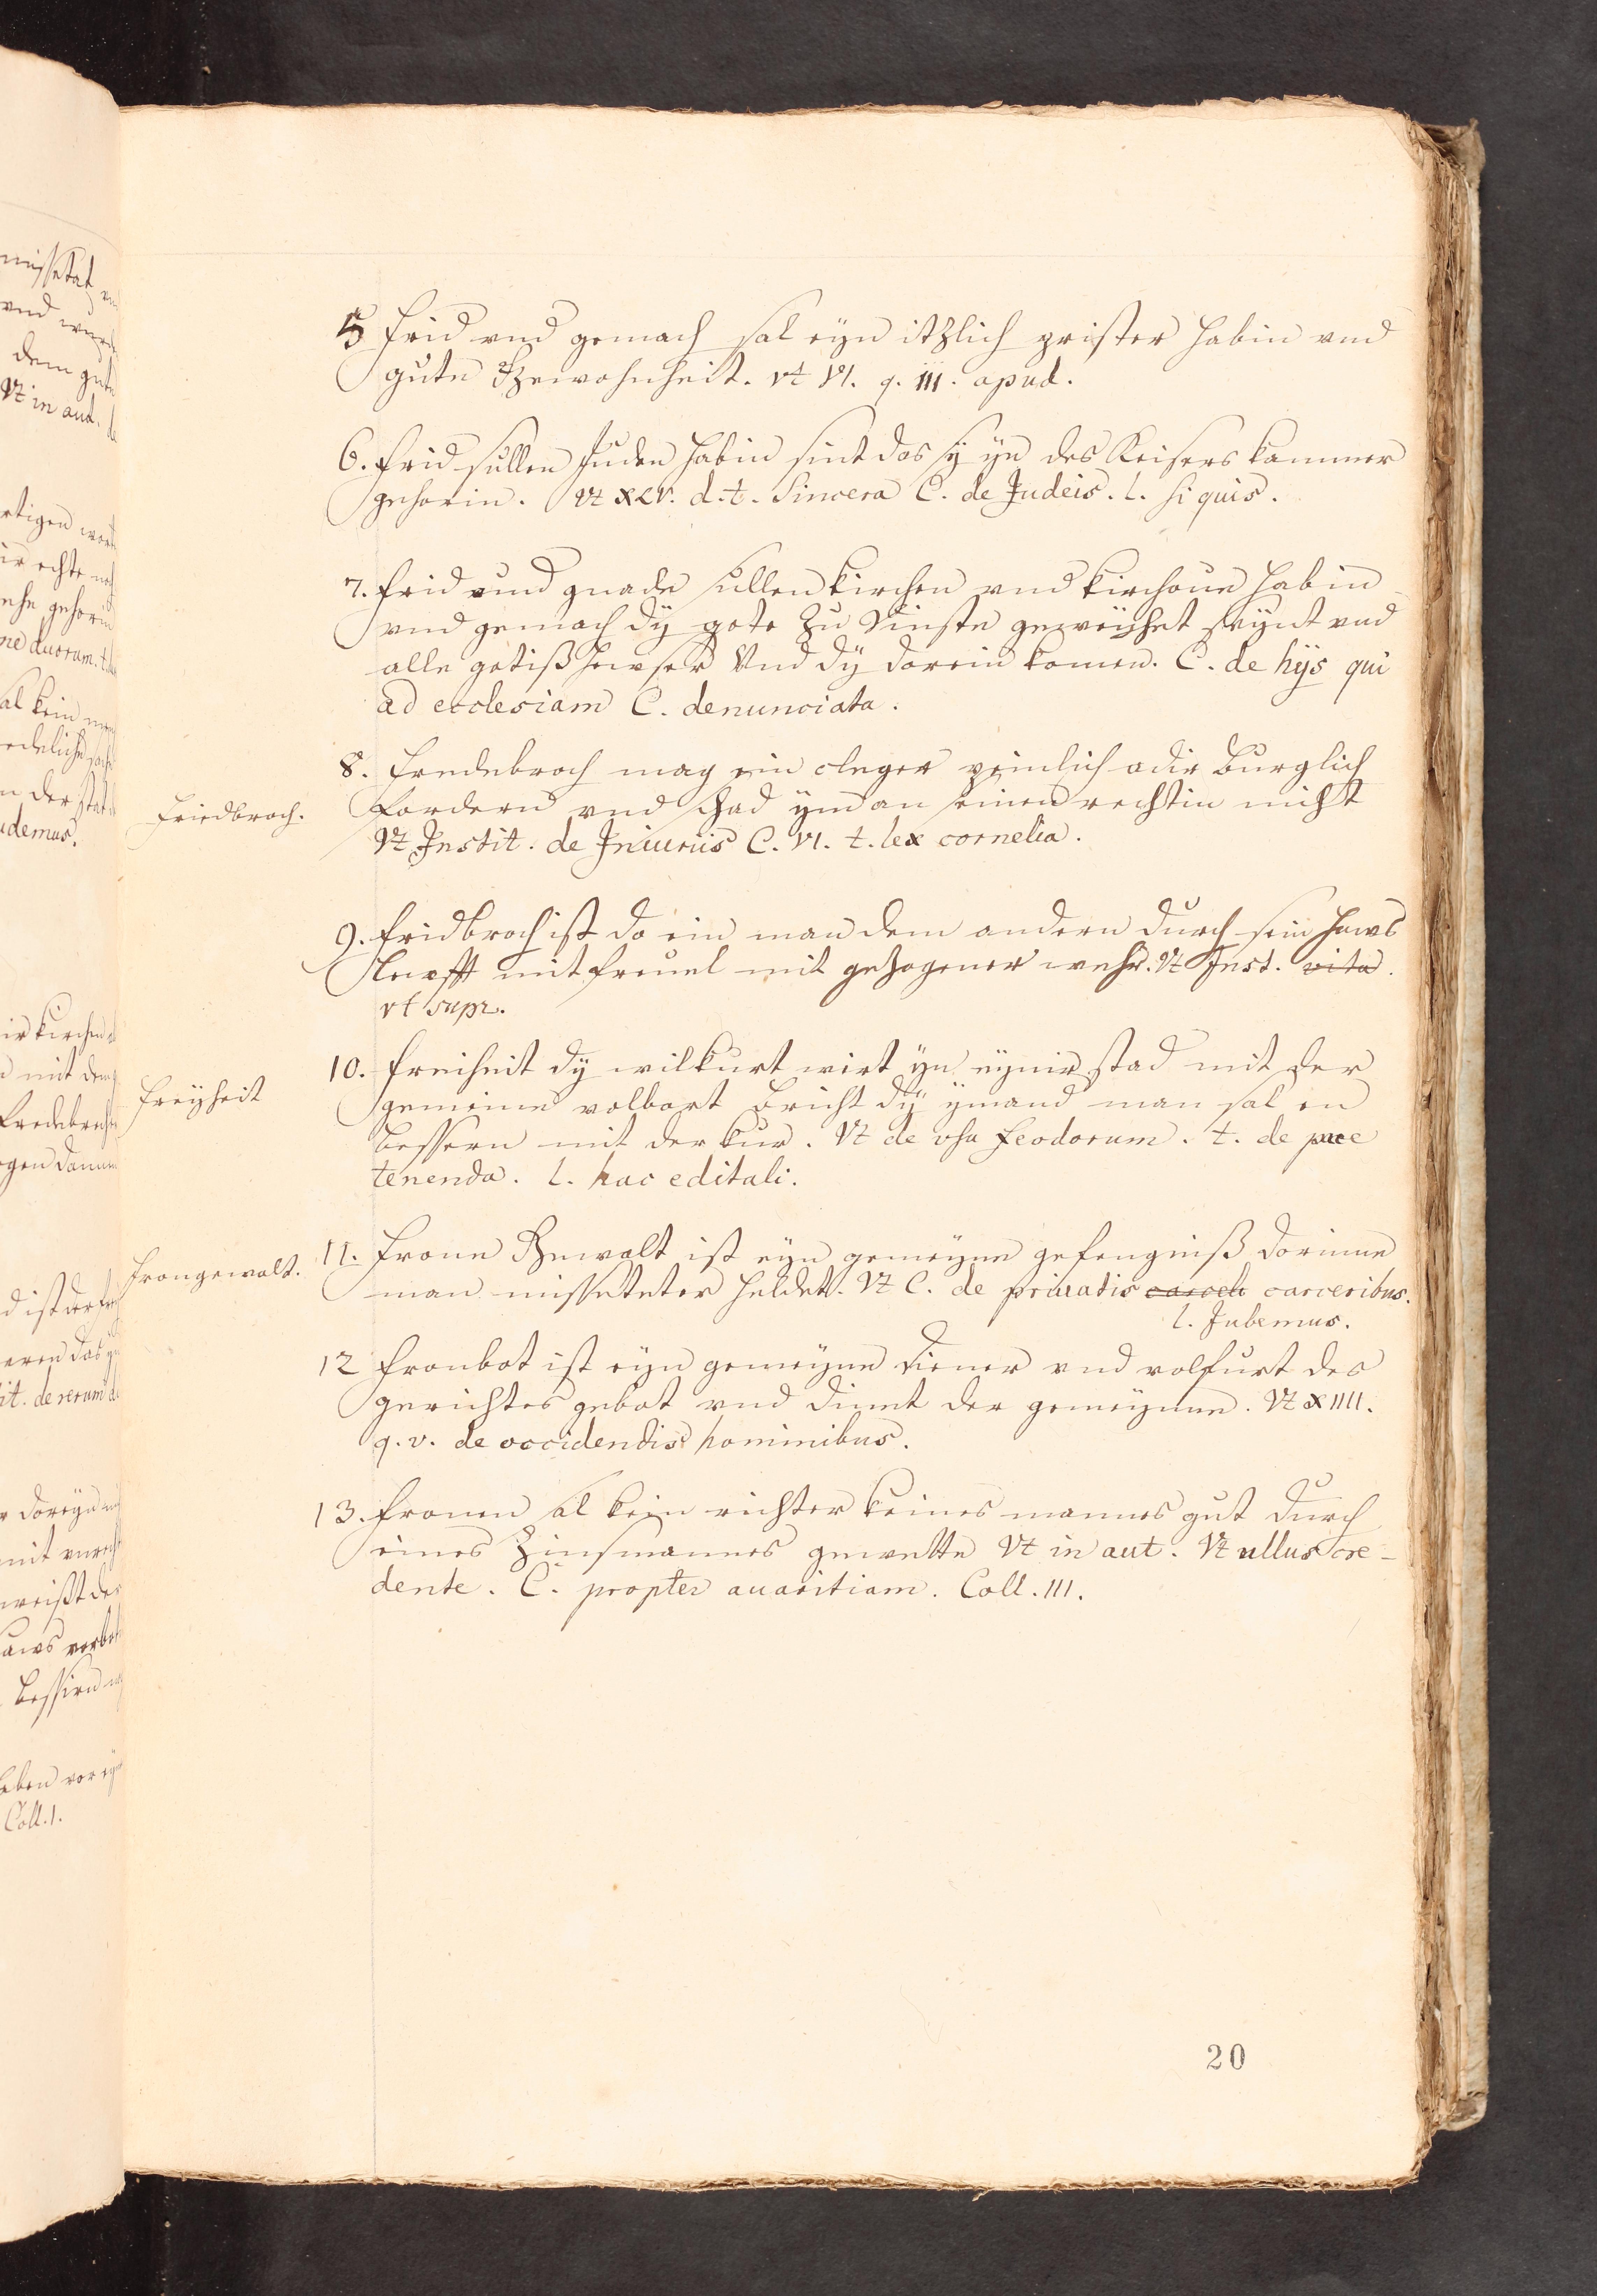 5 frid vnd gemach sal eyn itzlich prister habin vnd
gute Gewohnheit. vt VI. q. III. apud.
6. frid sullen Juden habin sint das sy yn des Keisers kammer
gehorin. Vt XLV. d. t. Sincera C. de Judeis. l. si quis.
7. frid vnnd gnade sullen kirchen vnd kirchoue habin
vnd gemach dÿ gote zu dinste geweÿhet seÿnt vnd
alle gotißhewser Vnd dÿ darein komen. C. de hijs qui
ad ecclesiam C. denunciata.
8. Fredebroch mag ein cleger peinlich adir Burglich
Friedbroch.
fordern vnd schad ÿm an seinen rechtin nicht
Vt Instit. de Iniuriis C. VI. t. lex cornelia.
9. fridbroch ist do ein man dem andern durch sein haws
lewfft mit freuel mit gezogener wehr. Vt Inst. vita.
vt supr.
10. freiheit dÿ wilkurt wirt ÿn eÿnir stad mit der
freÿheit
gemeine volbort Bricht dÿ ÿmand man sal en
bessern mit der kur. Vt de vsu feodorum. t. de pace
tenenda. l. hac editali.
11. frone Gewalt ist eyn gemeyne gefengniß dorinne
frongewalt.
man misseteter heldet. Vt C. de priuatis carceb carceribus.
l. Jubemus.
12 fronbot ist eyn gemeyne diener vnd volfurt des
gerichtes gebot vnd dinet der gemeynne. Vt XIIII.
q. v. de occidendis hominibus.
13. fronen sal kein richter keines mannes gut durch
eines Zinsmannes gewette Vt in aut. Vt nullus cre-
dente. C. propter auaritiam. Coll. III.
20